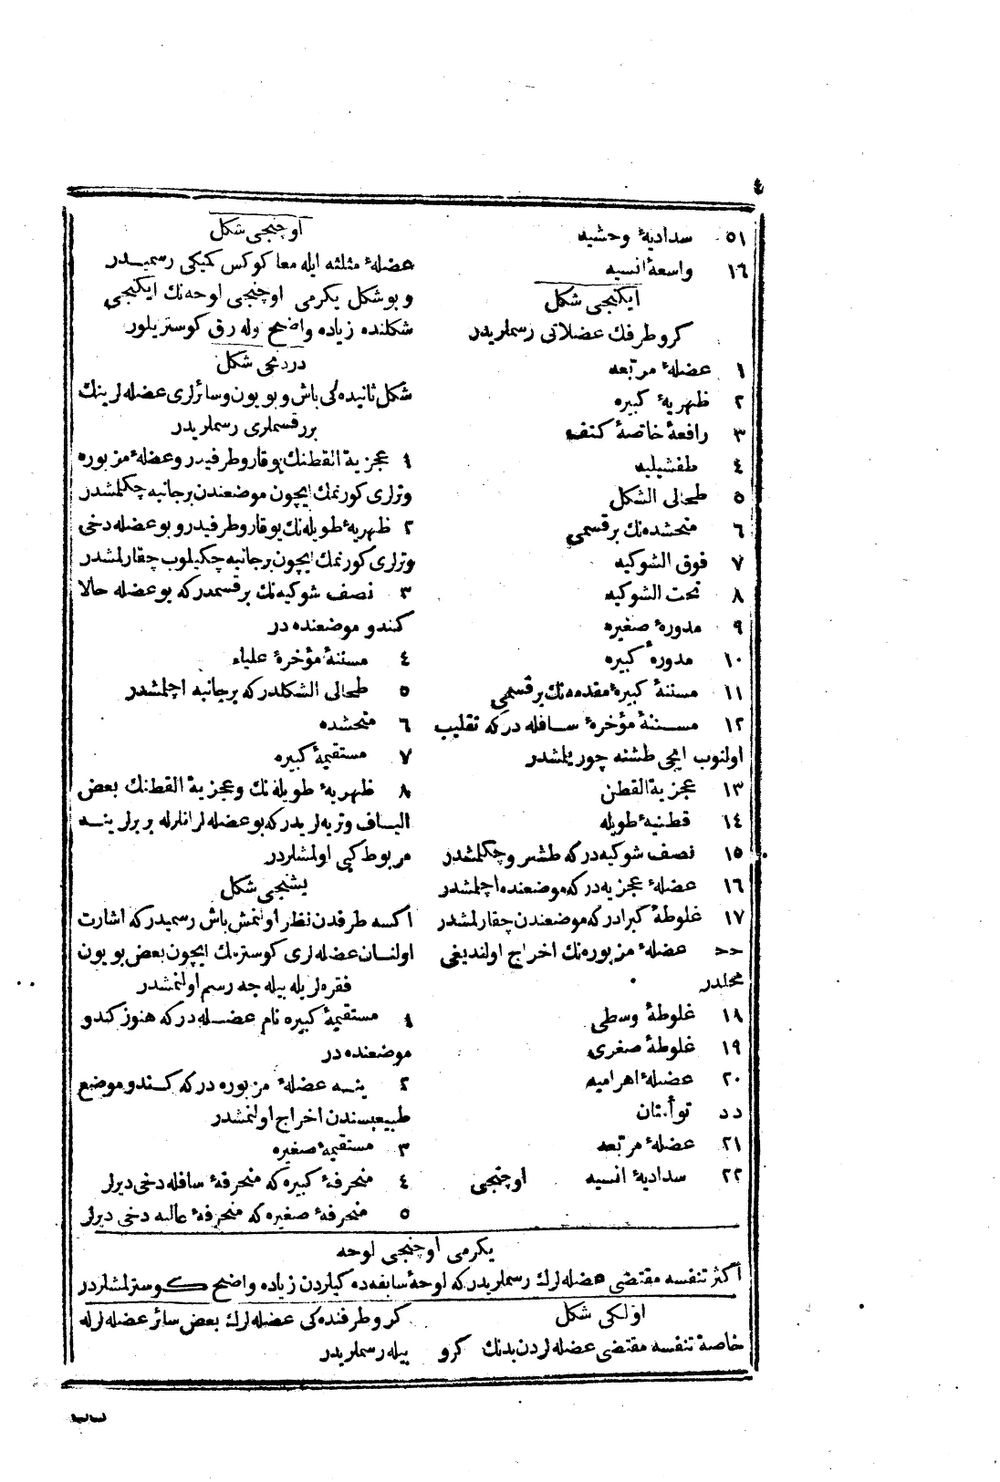 ٤
٥١ سدادیهٔ وحشیه
١٦ واسعهٔ انسیه
ایکنجی شکل
کرو طرفك عضلاتی رسملریدر
١ عضلهٔ مربّعه
٢ ظهریهٔ کبیره
٣ رافعهٔ خاصهٔ کتف
٤ طفشیلیه
٥ طحالی الشکل
٦ منحشده‌نك برقسمی
٧ فوق الشوکیه
٨ تحت الشوکیه
٩ مدورهٔ صغیره
١٠ مدورهٔ کبیره
١١ مسننهٔ کبیرهٔ مقدمه‌نك برقسمی
١٢ مسننهٔ مؤخرهٔ سافله درکه تقلیب
اولنوب ایچی طشنه چوریلشدر
١٣ عجزیة القطن
١٤ قطنیهٔ طویله
١٥ نصف شوکیه‌درکه طشره چکلمشدر
١٦ عضلهٔ عجزیه‌درکه موضعنده اچلمشدر
١٧ غلوطهٔ کبرادرکه موضعندن چقارلمشدر
عضلهٔ مزبوره‌نك اخراج اولندیغی
محلدر
١٨ غلوطهٔ وسطی
١٩ غلوطهٔ صغری
٢٠ عضلهٔ اهرامیه
دد توأمتان
٢١ عضلهٔ مربّعه
٢٢ سدادیهٔ انسیه اوچنجی
اوچنجی شکل
عضلهٔ مثلثه ایله معا کوکس کمیکی رسمیدر
و بو شکل یکرمی اوچنجی لوحه‌نك ایکنجی
شکلنده زیاده واضح اوله‌رق کوستریلور
دردنجی شکل
شکل ثانیده‌کی باش و بویون و سائرلری عضله‌لرینك
بررقسملری رسملریدر
١ عجزیة القطنك یوقاروطرفیدر و عضلهٔ مزبوره
وترلری کورنمك ایچون موضعندن برجانبه چکلمشدر
٢ ظهریهٔ طویله‌نك یوقاروطرفیدر و بو عضله دخی
وترلری کورنمك ایچون برجانبه چکیلوب چقارلمشدر
٣ نصف شوکیه‌نك برقسمدرکه بو عضله حالا
کندو موضعنده در
٤ مسننهٔ مؤخرهٔ علیاء
٥ طحالی الشکلدرکه برجانبه اچلمشدر
٦ منحشده
٧ مستقیمهٔ کبیره
٨ ظهریهٔ طویله‌نك و عجزیة القطنك بعض
الیاف وتریه‌لریدرکه بو عضله‌لر انلرله بربرلرینه
مربوط کبی اولمشلردر
بشنجی شکل
اکسه طرفدن نظر اولنمش باش رسمیدرکه اشارت
اولنان عضله‌لری کوسترمك ایچون بعض بویون
فقره‌لریله بیله جه رسم اولنمشدر
١ مستقیمهٔ کبیره نام عضله‌درکه هنوز کندو
موضعنده در
٢ ینه عضلهٔ مزبوره درکه کندو موضع
طبیعیسندن اخراج اولنمشدر
٣ مستقیمهٔ صغیره
٤ منحرفهٔ کبیره که منحرفهٔ سافله دخی دیرلر
٥ منحرفهٔ صغیره که منحرفهٔ عالیه دخی دیرلر
یکرمی اوچنجی لوحه
اکثر تنفسه مقتضی عضله‌لرك رسملریدرکه لوحهٔ سابقه‌ده کیلردن زیاده واضح کوسترلمشلردر
اوّلکی شکل
خاصهٔ تنفسه مقتضی عضله‌لردن بدنك کرو
کرو طرفنده‌کی عضله‌لرك بعض سائر عضله‌لرله
بیله رسملریدر